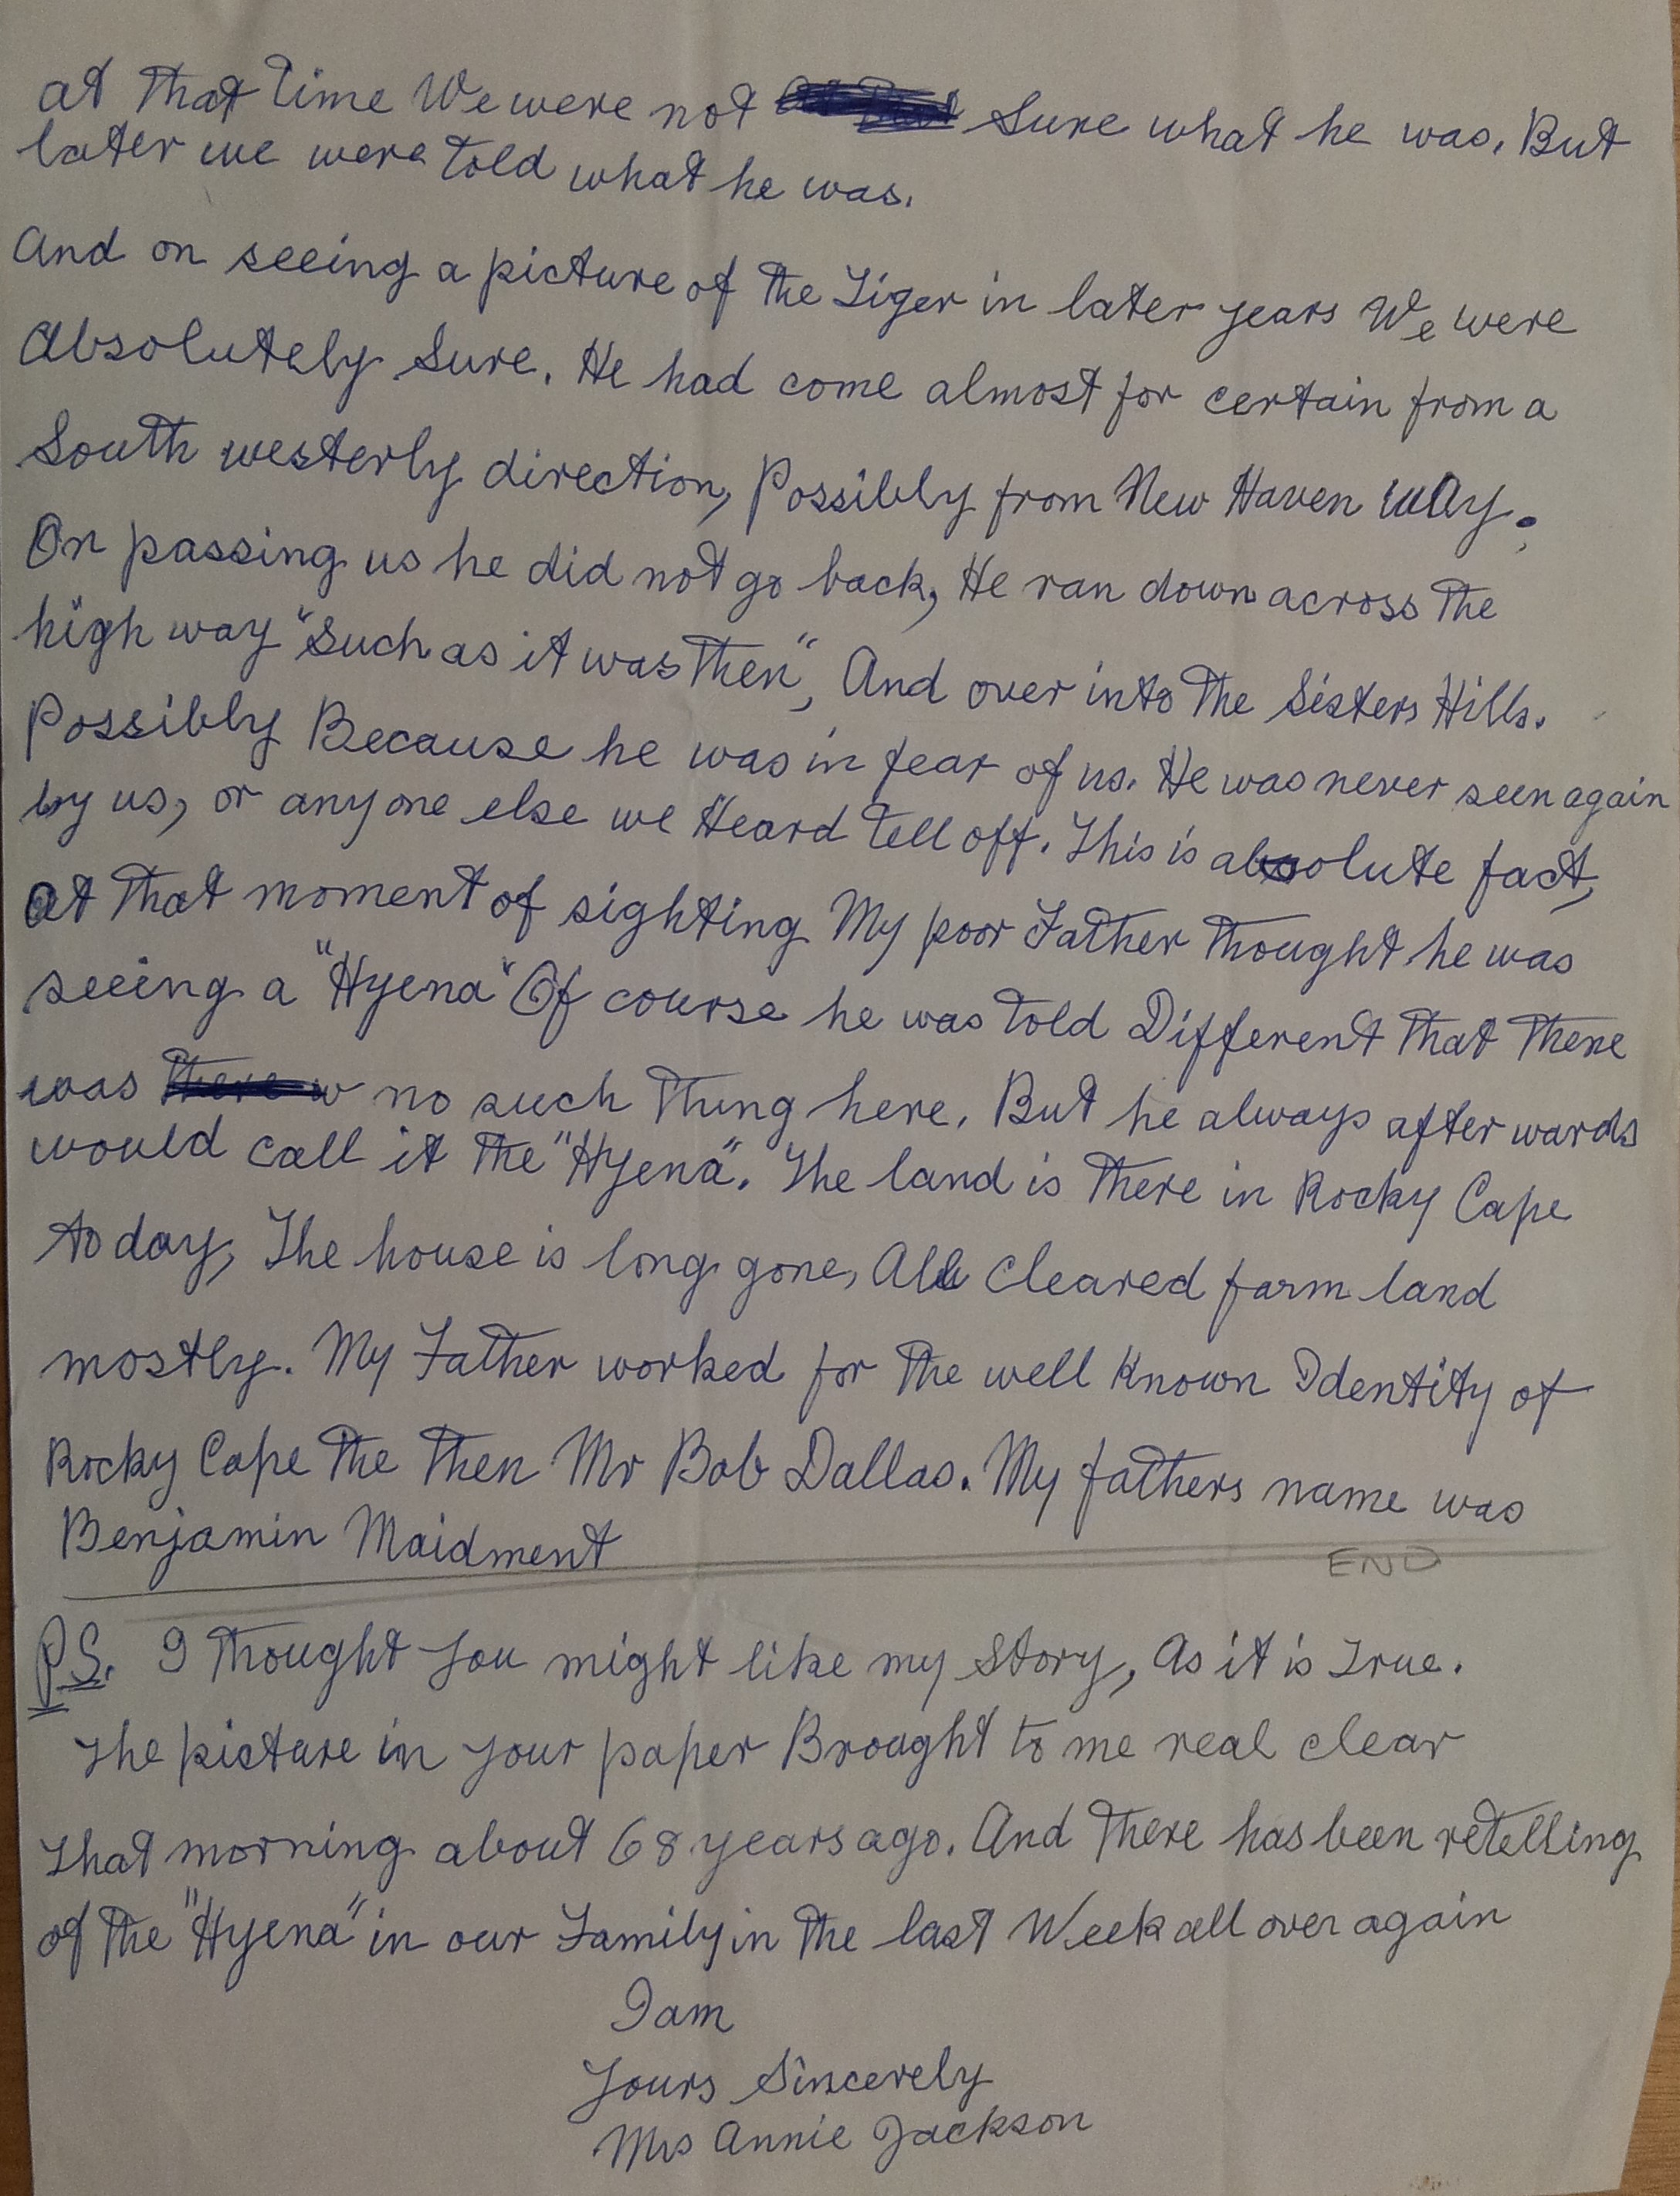 at That Time We were not Sure what he was. But
later we were Told what he was.
And on seeing a picture of the Tiger in later years We were
Absolutely Sure. He had come almost for certain from a
South westerly direction, Possibly from New Haven way.
On passing us he did not go back, He ran down across the
high way "Such as it was Then", And over into The Sisters Hills.
Possibly Because he was in fear of us. He was never seen again
by us, or anyone else we Heard Tell off. This is absolute fact,
at That moment of sighting My poor Father Thought he was
seeing a "Hyena" Of course he was Told Different That There
was there w no such Thing here. But he always after wards
would call it The "Hyena". The land is There in Rocky Cape
to day, The house is long gone, All Cleared farm land
mostly. My Father worked for The well Known Identity of
Rocky Cape The Then Mr Bob Dallas. My fathers name was
Benjamin Maidment
END
P.S. I Thought You might like my Story, As it is True.
The picture in your paper Brought to me real clear
That morning about 68 years ago. And There has been retelling
of The "Hyena" in our Family in The last Week all over again
I am
Yours Sincerely
Mrs Annie Jackson